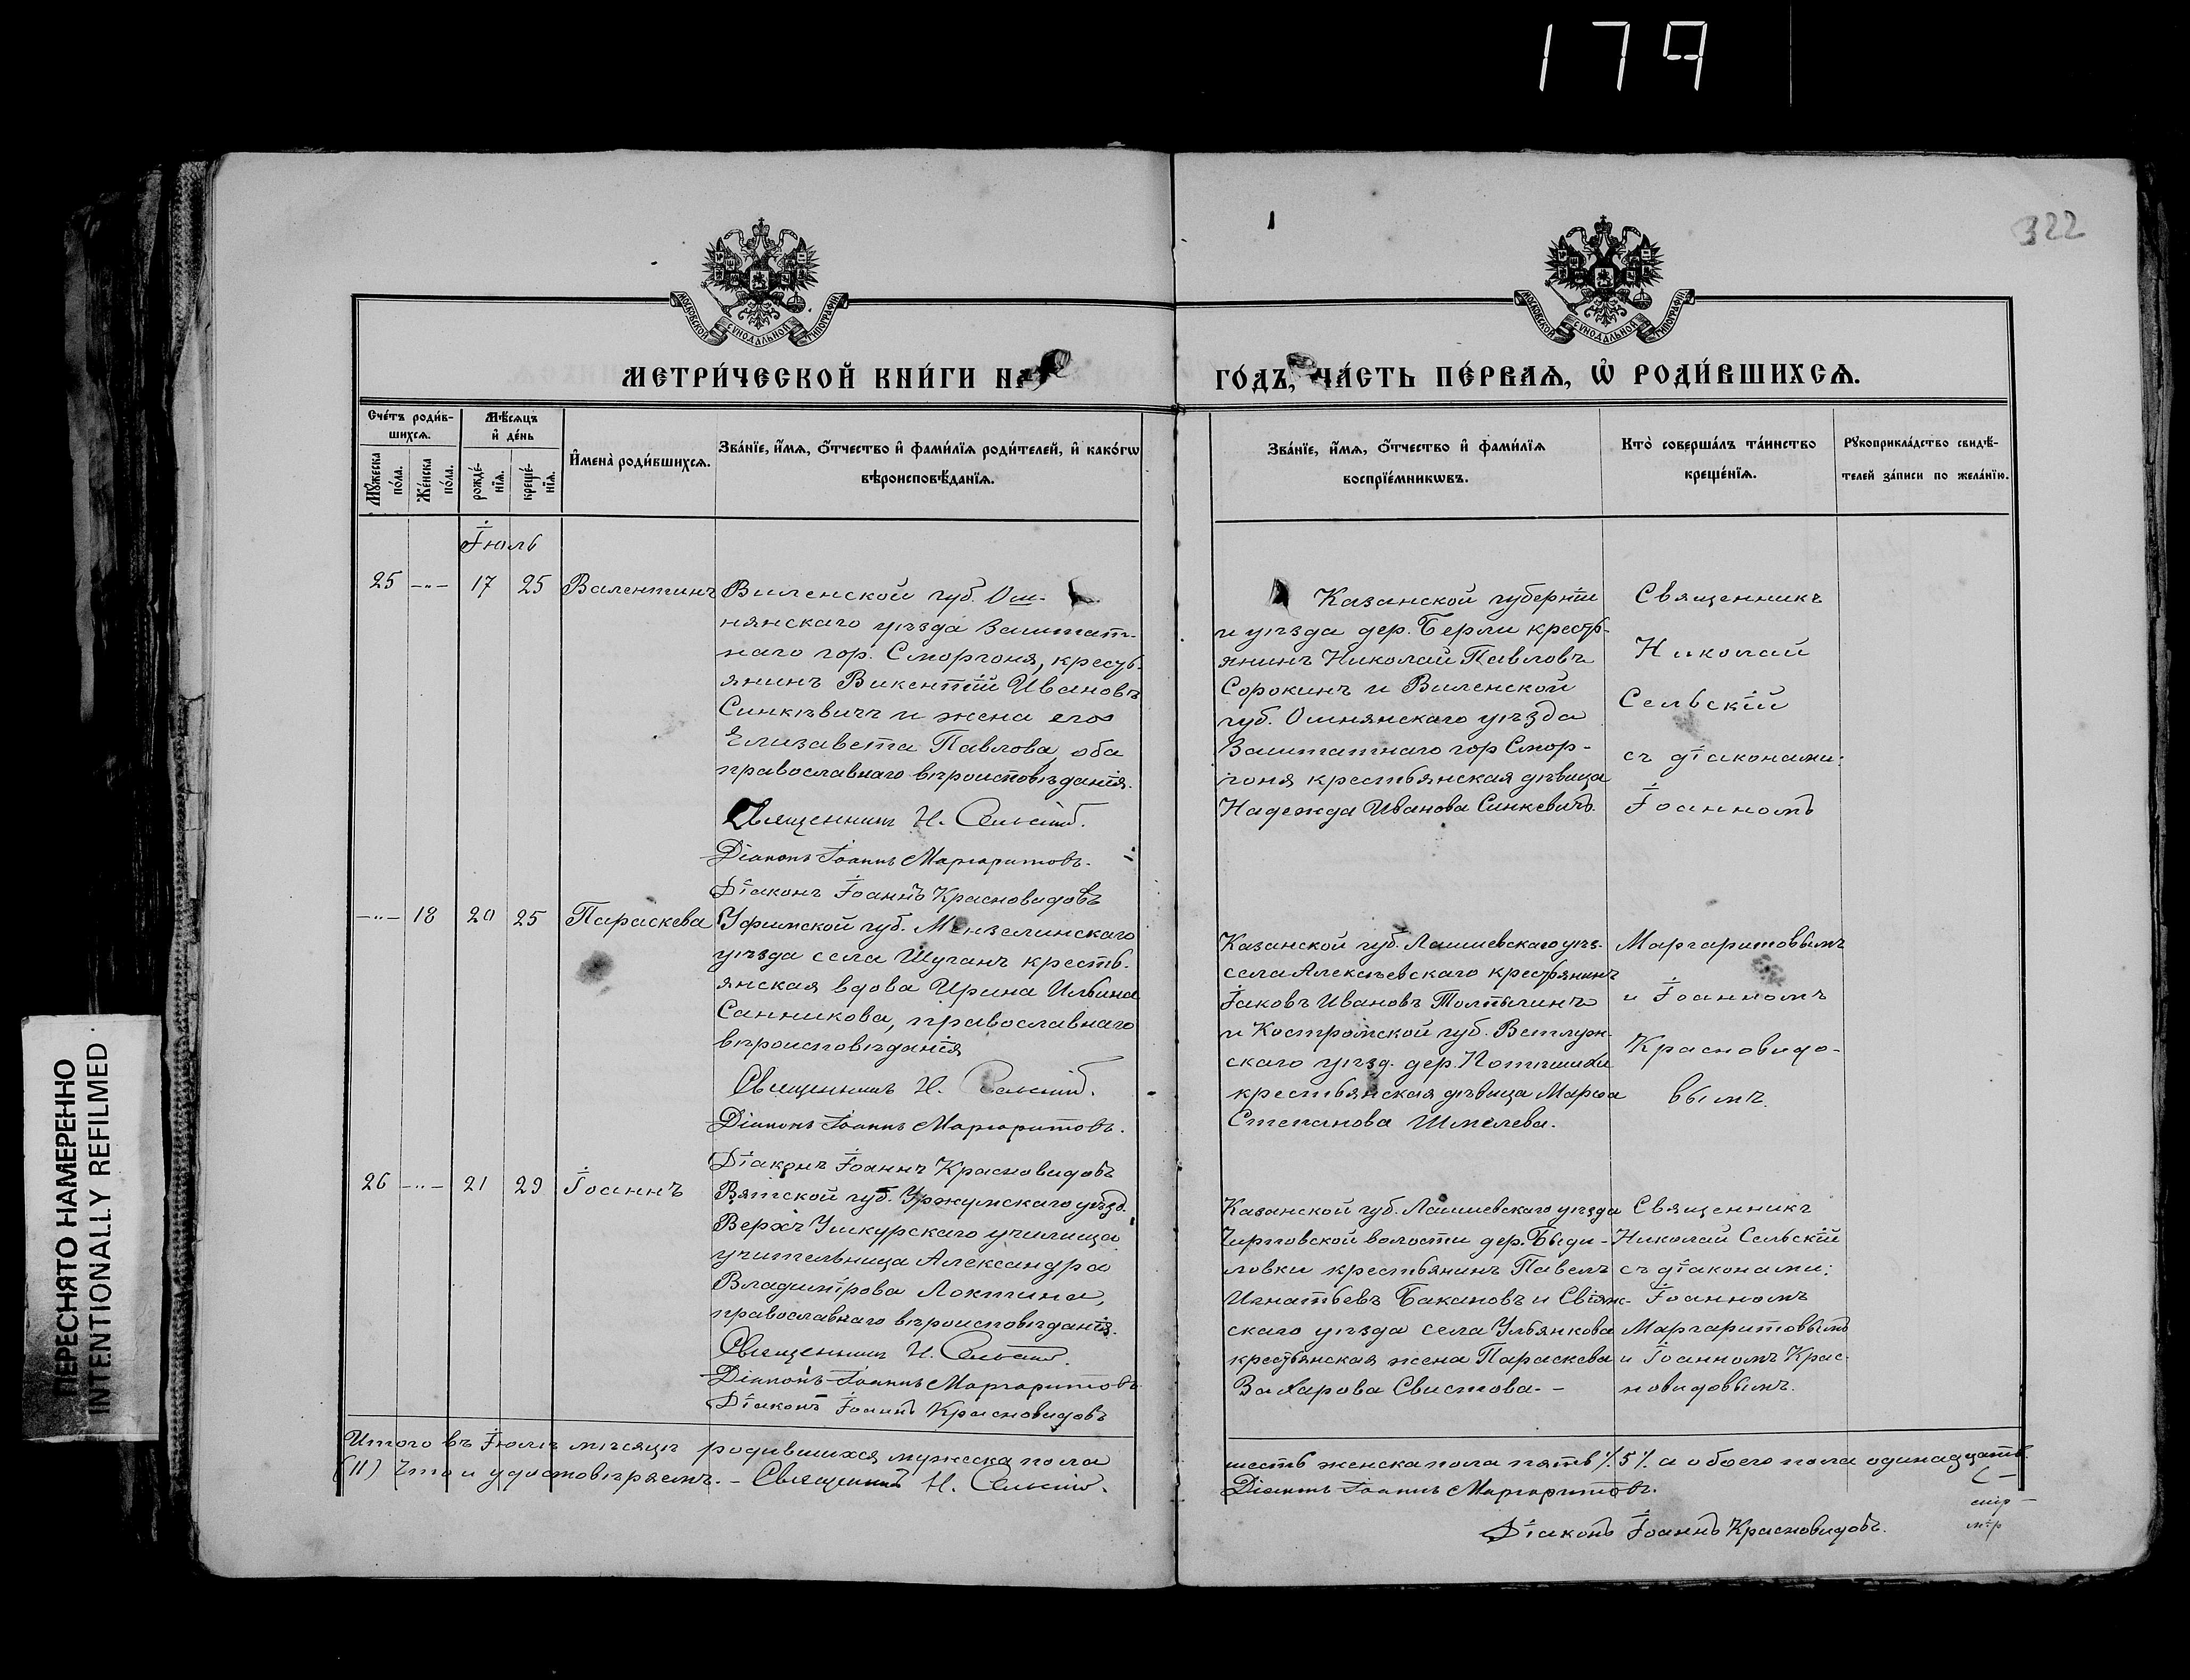 179
322
МЕТРИ́ЧЕСКОЙ КНИ́ГИ НА
ГО́ДЪ, ЧА́СТЬ ПЕ́РВАЯ, Ѡ РОДИ́ВШИХСЯ.
МОСКОВСКОЙ СѴНОДАЛЬНОЙ ТИПОГРАФІИ
МОСКОВСКОЙ СѴНОДАЛЬНОЙ ТИПОГРАФІИ
Сче́тъ роди́в-
шихся.
Мꙋ́жеска по́ла.
Же́нска по́ла.
Мѣ́сяцъ
и҆ де́нь
рожде́-
нїѧ.
креще́-
нїѧ.
И҆мена̀ роди́вшихся.
Зва́нїе, и҆́мѧ, ѻ҆́тчество и҆ фами́лїѧ роди́телей, и҆ како́гѡ
вѣроисповѣ́данїѧ.
Зва́нїе, и҆́мѧ, ѻ҆́тчество и҆ фами́лїѧ
воспрїе́мникѡвъ.
Кто̀ соверша́лъ та́инство
креще́нїѧ.
Рꙋкоприкла́дство свидѣ́-
телей за́писи по жела́нїю.
Іюль
25 -"- 17 25 Валентинъ
Виленской губ. Ош-
нянскаго уѣзда Заштат-
наго гор. Сморгоня, кресть-
янинъ Викентій Ивановъ
Синкѣвичъ и жена его
Елизавета Павлова, оба
православнаго вѣроисповѣданія.
Священникъ Н. Сельскій.
Діаконъ Іоаннъ Маргаритовъ.
Діаконъ Іоаннъ Красновидовъ
Казанской губерніи
и уѣзда дер. Берли кресть-
янинъ Николай Павловъ
Сорокинъ и Виленской
губ. Ошнянскаго уѣзда
Заштатнаго гор Смор-
гоня крестьянская дѣвица
Надежда Иванова Синкевичъ.
Священникъ
Николай
Сельскій
съ діаконами:
Іоанномъ
-"- 18 20 25 Параскева
Уфимской губ. Мензелинскаго
уѣзда села Шуганъ кресть-
янская вдова Ирина Ильина
Санникова, православнаго
вѣроисповѣданія
Священникъ Н. Сельскій.
Діаконъ Іоаннъ Маргаритовъ.
Діаконъ Іоаннъ Красновидовъ
Казанской губ. Лаишевскаго уѣз.
села Алексѣевскаго крестьянинъ
Іаковъ Ивановъ Толпыгинъ
и Костромской губ. Ветлуж-
скаго уѣзд. дер.
крестьянская дѣвица Марѳа
Степанова Шмелева.
Маргаритовымъ
и Іоанномъ
Красновидо-
вымъ.
26 -"- 21 29 Іоаннъ
Вятской губ. Уржумскаго уѣзд.
Верхъ Ушкурскаго училища
учительница Александра
Владимірова Локтина,
православнаго вѣроисповѣданія.
Священникъ Н. Сельскій.
Діаконъ Іоаннъ Маргаритовъ
Діаконъ Іоаннъ Красновидовъ
Казанской губ. Лаишевскаго уѣзда
Чирповской волости дер. Быди-
ловки крестьянинъ Павелъ
Игнатьевъ Бакановъ и Свіяж-
скаго уѣзда села Ульянкова
крестьянская жена Параскева
Захарова Свистова. -
Священникъ
Николай Сельскій
съ діаконами:
Іоанномъ
Маргаритовымъ
и Іоанномъ Крас-
новидовымъ.
Итого въ Іюлѣ мѣсяцѣ родившихся мужеска пола
шесть женска пола пять ٪5٪ а обоего пола одинадцать
(11) Что и удостовѣряемъ. - Священникъ Н. Сельскій.
Діаконъ Іоаннъ Маргаритовъ.
Діаконъ Іоаннъ Красновидовъ.
ПЕРЕСНЯТО НАМЕРЕННО
INTENTIONALLY REFILMED